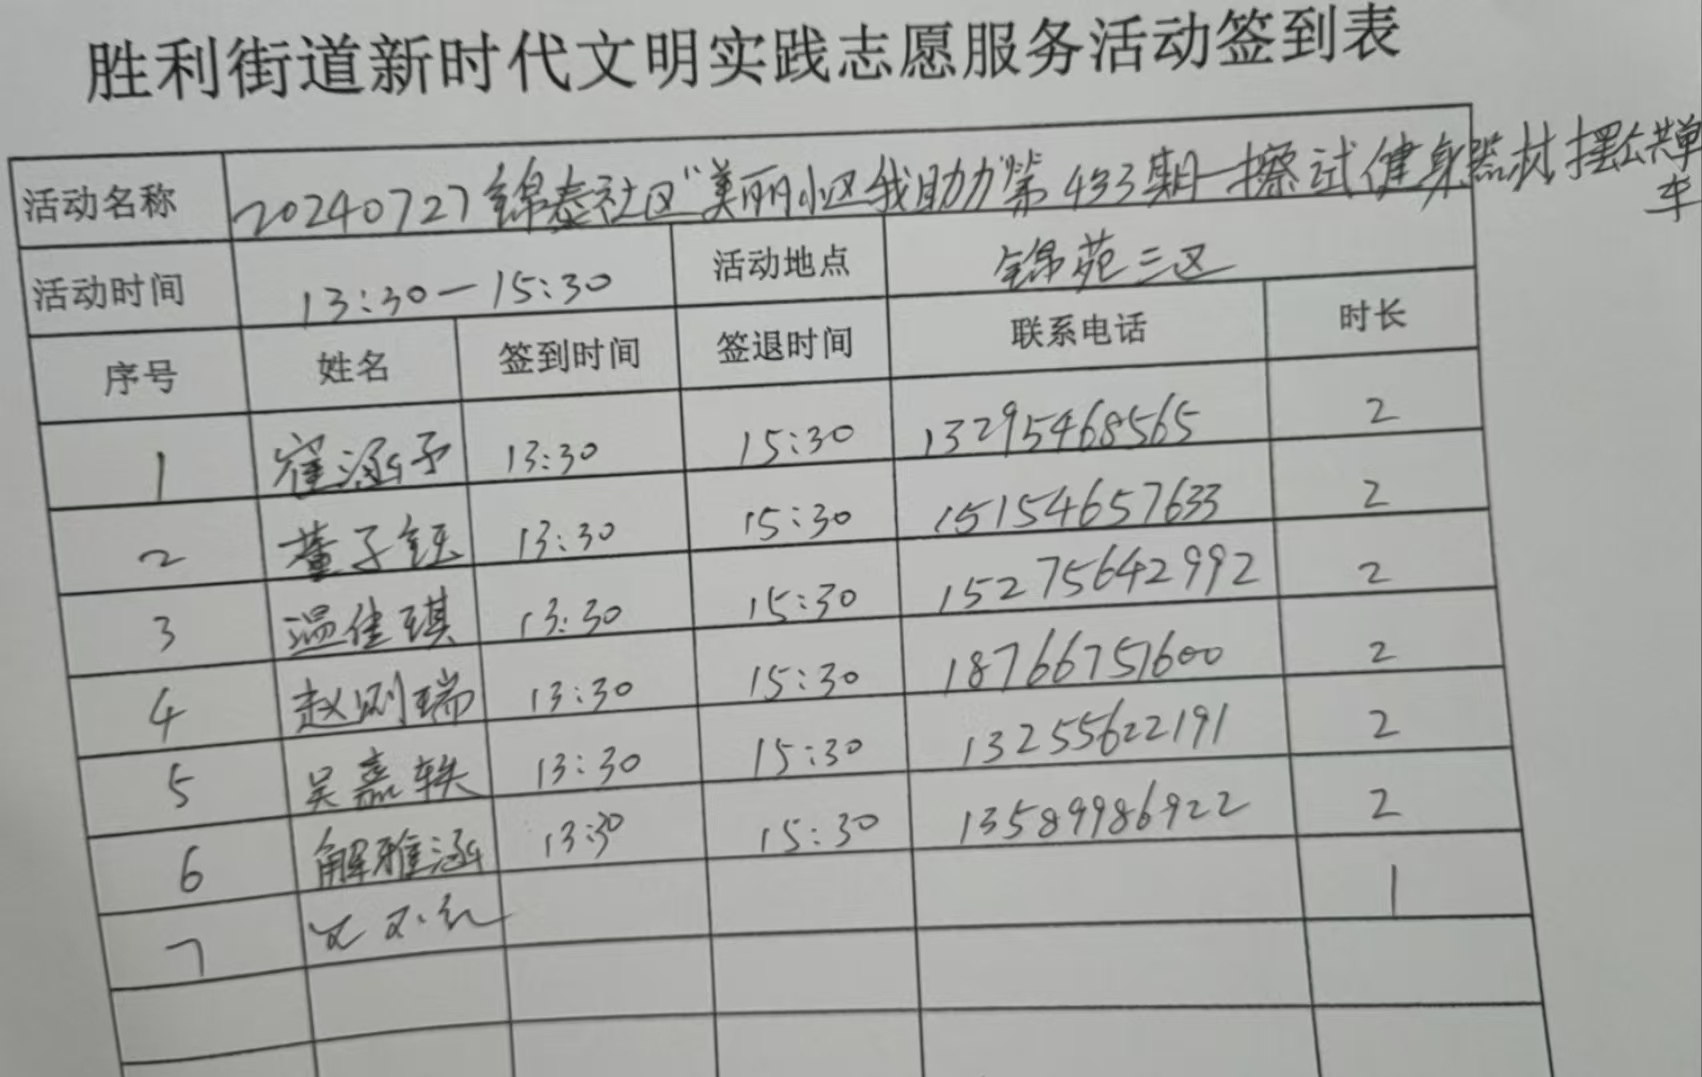 胜利街道新时代文明实践志愿服务活动签到表
活动名称 20240727锦泰社区“美丽小区我助力”第433期—擦试健身器材摆公共单
车
活动时间 13:30—15:30 活动地点 锦苑三区
序号 姓名 签到时间 签退时间 联系电话 时长
1 崔涵予 13:30 15:30 13295468565 2
2 董子钰 13:30 15:30 15154657633 2
3 温佳琪 13:30 15:30 15275642992 2
4 赵 瑞 13:30 15:30 18766751600 2
5 吴嘉轶 13:30 15:30 13255622191 2
6 解雅涵 13:30 15:30 13589986922 2
7 1